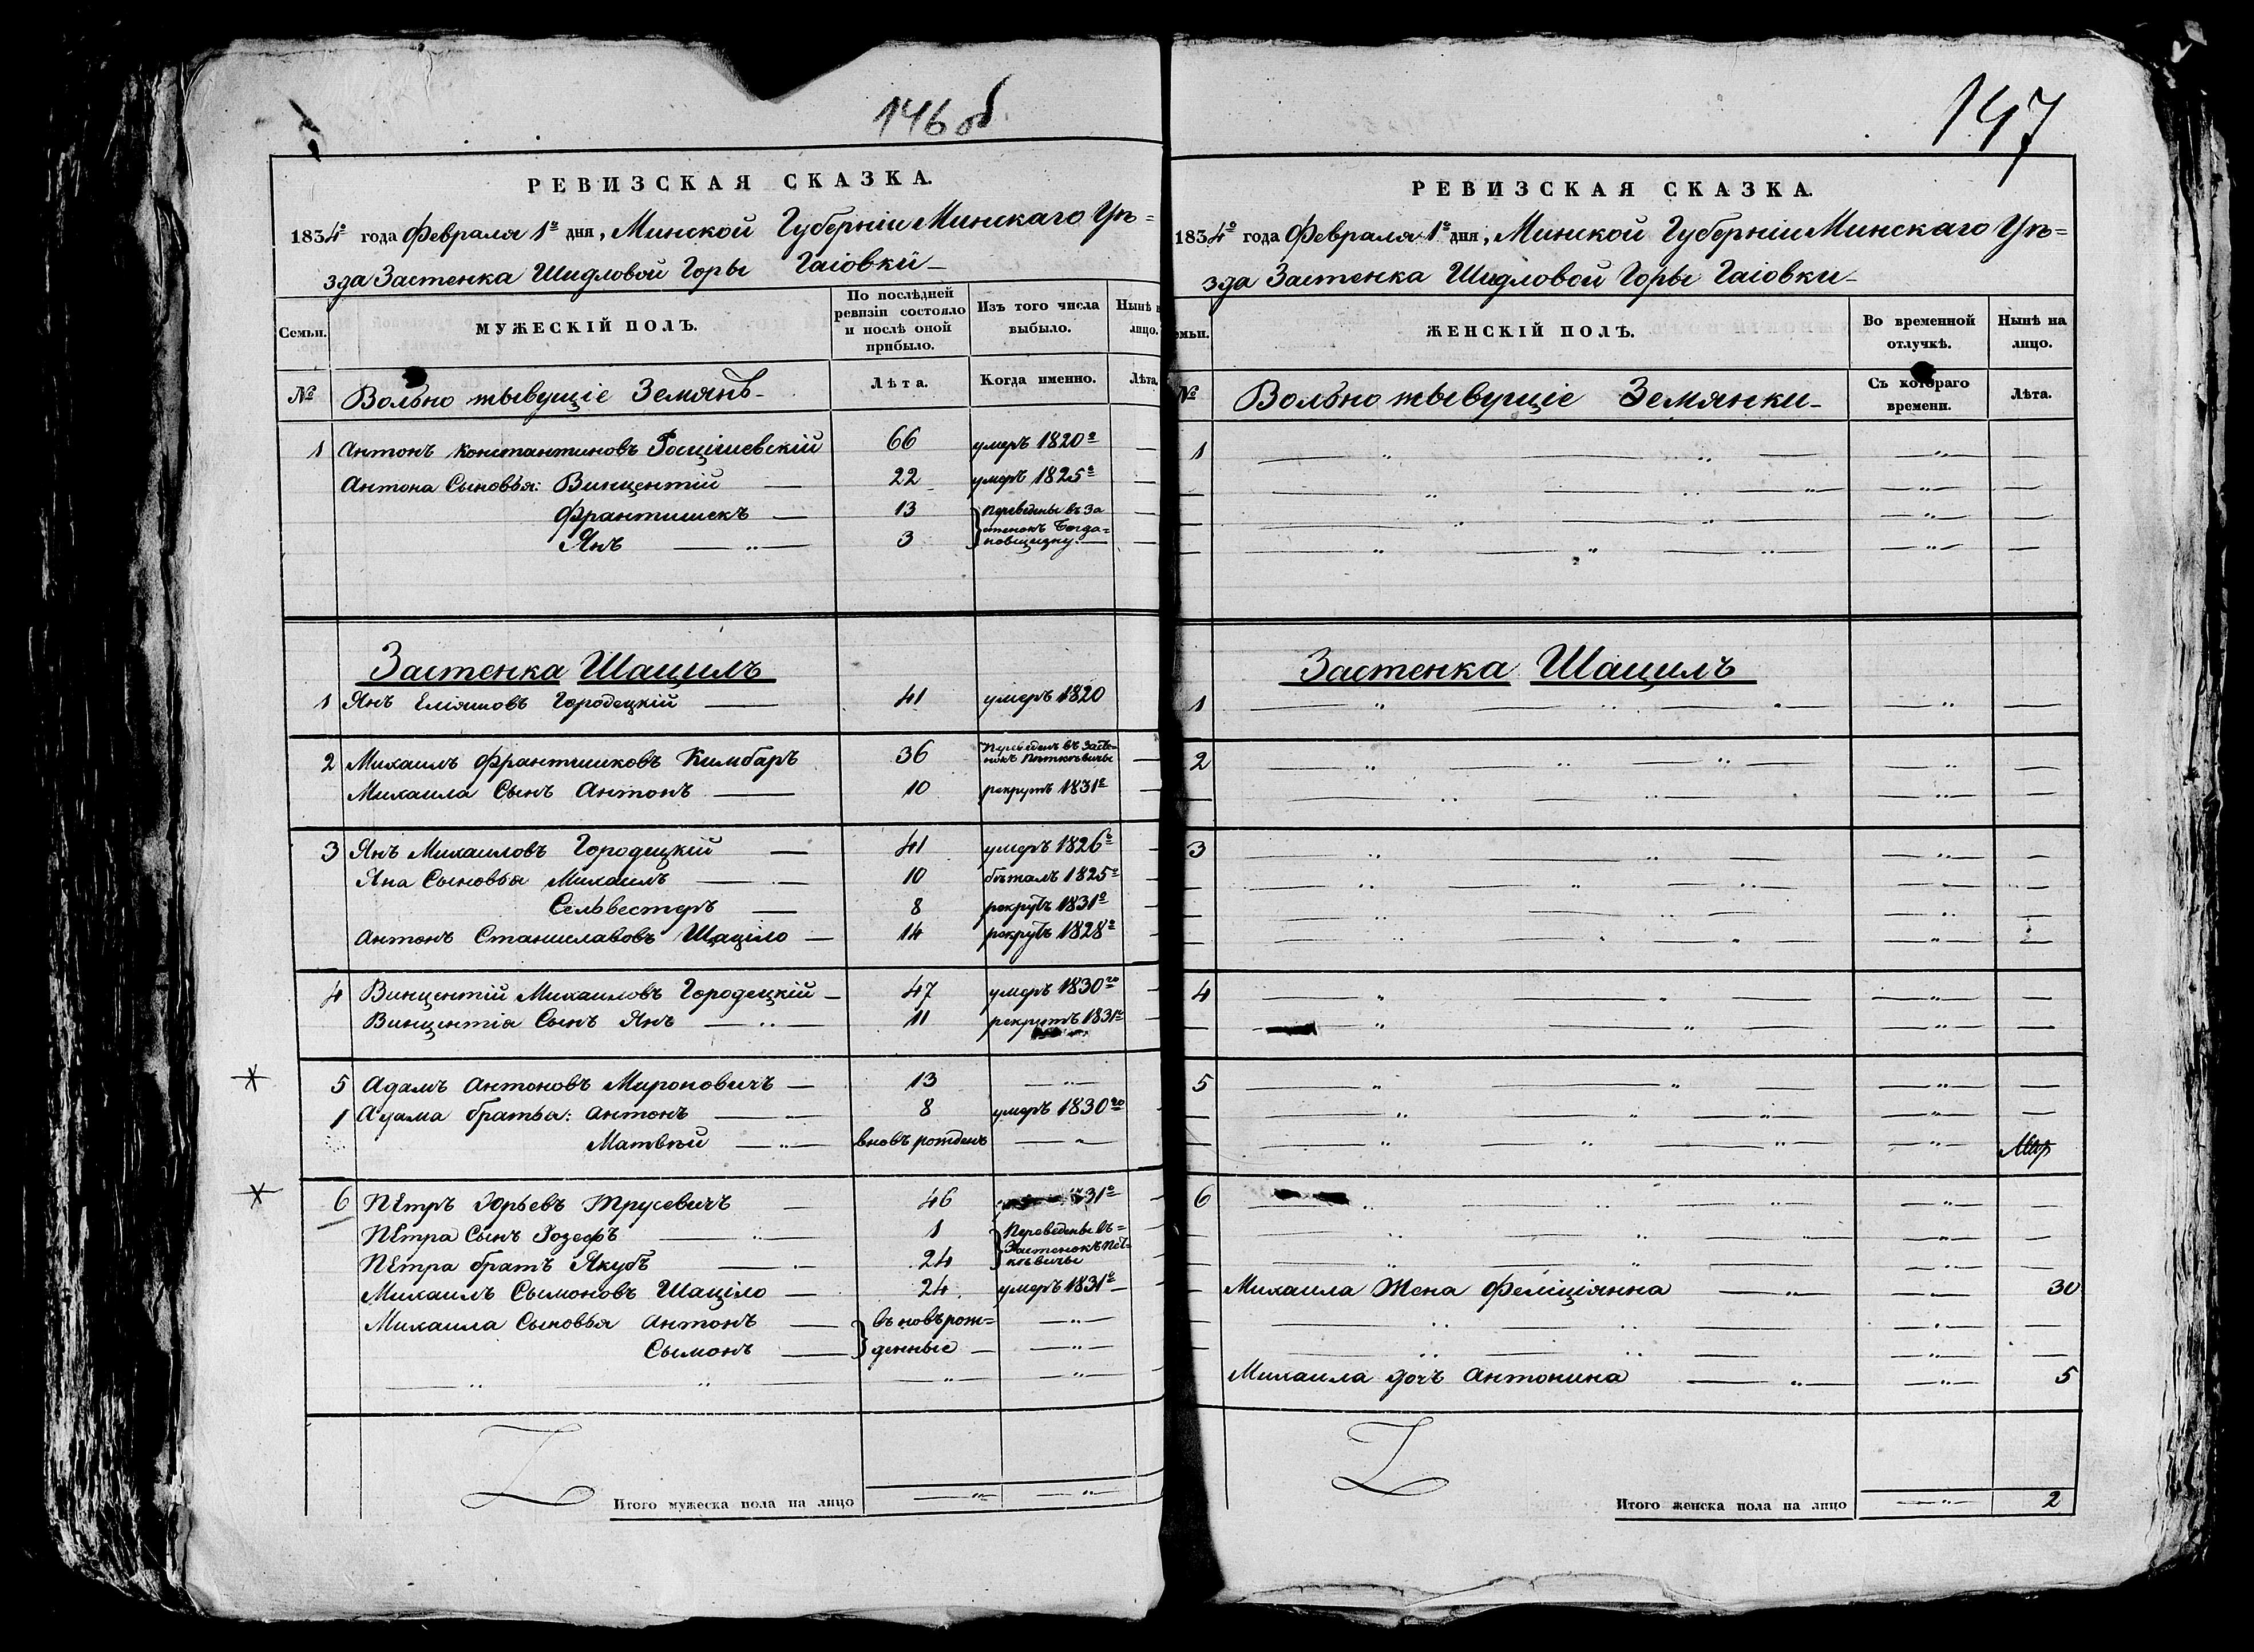 146 об
РЕВИЗСКАЯ СКАЗКА.
1834го года Февраля 1го дня, Минской Губерніи Минскаго Уѣ=
зда Застенка Шидловой Горы Гаіовки
Семьи.
МУЖЕСКІЙ ПОЛЪ.
По послѣдней ревизіи состояло и послѣ оной прибыло.
Изъ того числа выбыло.
Нынѣ
лицо.
№
Вольно жывущіе Земянѣ
Лѣта.
Когда именно.
Лѣта.
1 Антонъ Константиновъ Росцішевскій 66 умеръ 1820го
Антона Сыновья: Винцентій 22 умеръ 1825го
Франтишекъ 13 Переведены въ За
Янъ 3 стенокъ Богда=
новщизну.
Застенка Шацилъ
1 Янъ Еліяшовъ Городецкій 41 умеръ 1820
2 Михаилъ Франтишковъ Кимбаръ 36 Переведенъ въ Засте=
нокъ
Михаила Сынъ Антонъ 10 рекрутъ 1831го
3 Янъ Михаиловъ Городецкій 41 умеръ 1826го
Яна Сыновья Михаилъ 10 бѣжалъ 1825го
Сельвестеръ 8 рекрутъ 1831го
Антонъ Станиславовъ Шаціло 14 рекрутъ 1828го
4 Винцентій Михаиловъ Городецкій 47 умеръ 1830го
Винцентія Сынъ Янъ 11 рекрутъ 1831го
5 Адамъ Антоновъ Мироновичъ 13
1 Адама братья: Антонъ 8 умеръ 1830го
Матвѣй вновь рожденъ
6 Пётръ Юрьевъ Трусевичъ 46 31го
Пётра Сынъ Іозефъ 1 Переведены въ=
Пётра братъ Якубъ 24 Застенокъ Пет=
кевичы
Михаилъ Сымоновъ Шаціло 24 умеръ 1831го
Михаила Сыновья Антонъ въновърож=
Сымонъ денные
Итого мужеска пола на лицо
147
РЕВИЗСКАЯ СКАЗКА.
1834го года Февраля 1го дня, Минской Губерніи Минскаго Уѣ=
зда Застенка Шидловой Горы Гаіовки
емьи.
ЖЕНСКІЙ ПОЛЪ.
Во временной отлучкѣ.
Нынѣ на лицо.
№
Вольно жывущіе Земянки
Съ котораго времени.
Лѣта.
1
Застенка Шацилъ
1
2
3
4
5
6
Михаила Жена Феліціянна 30
Михаила дочъ Антонина 5
Итого женска пола на лицо 2